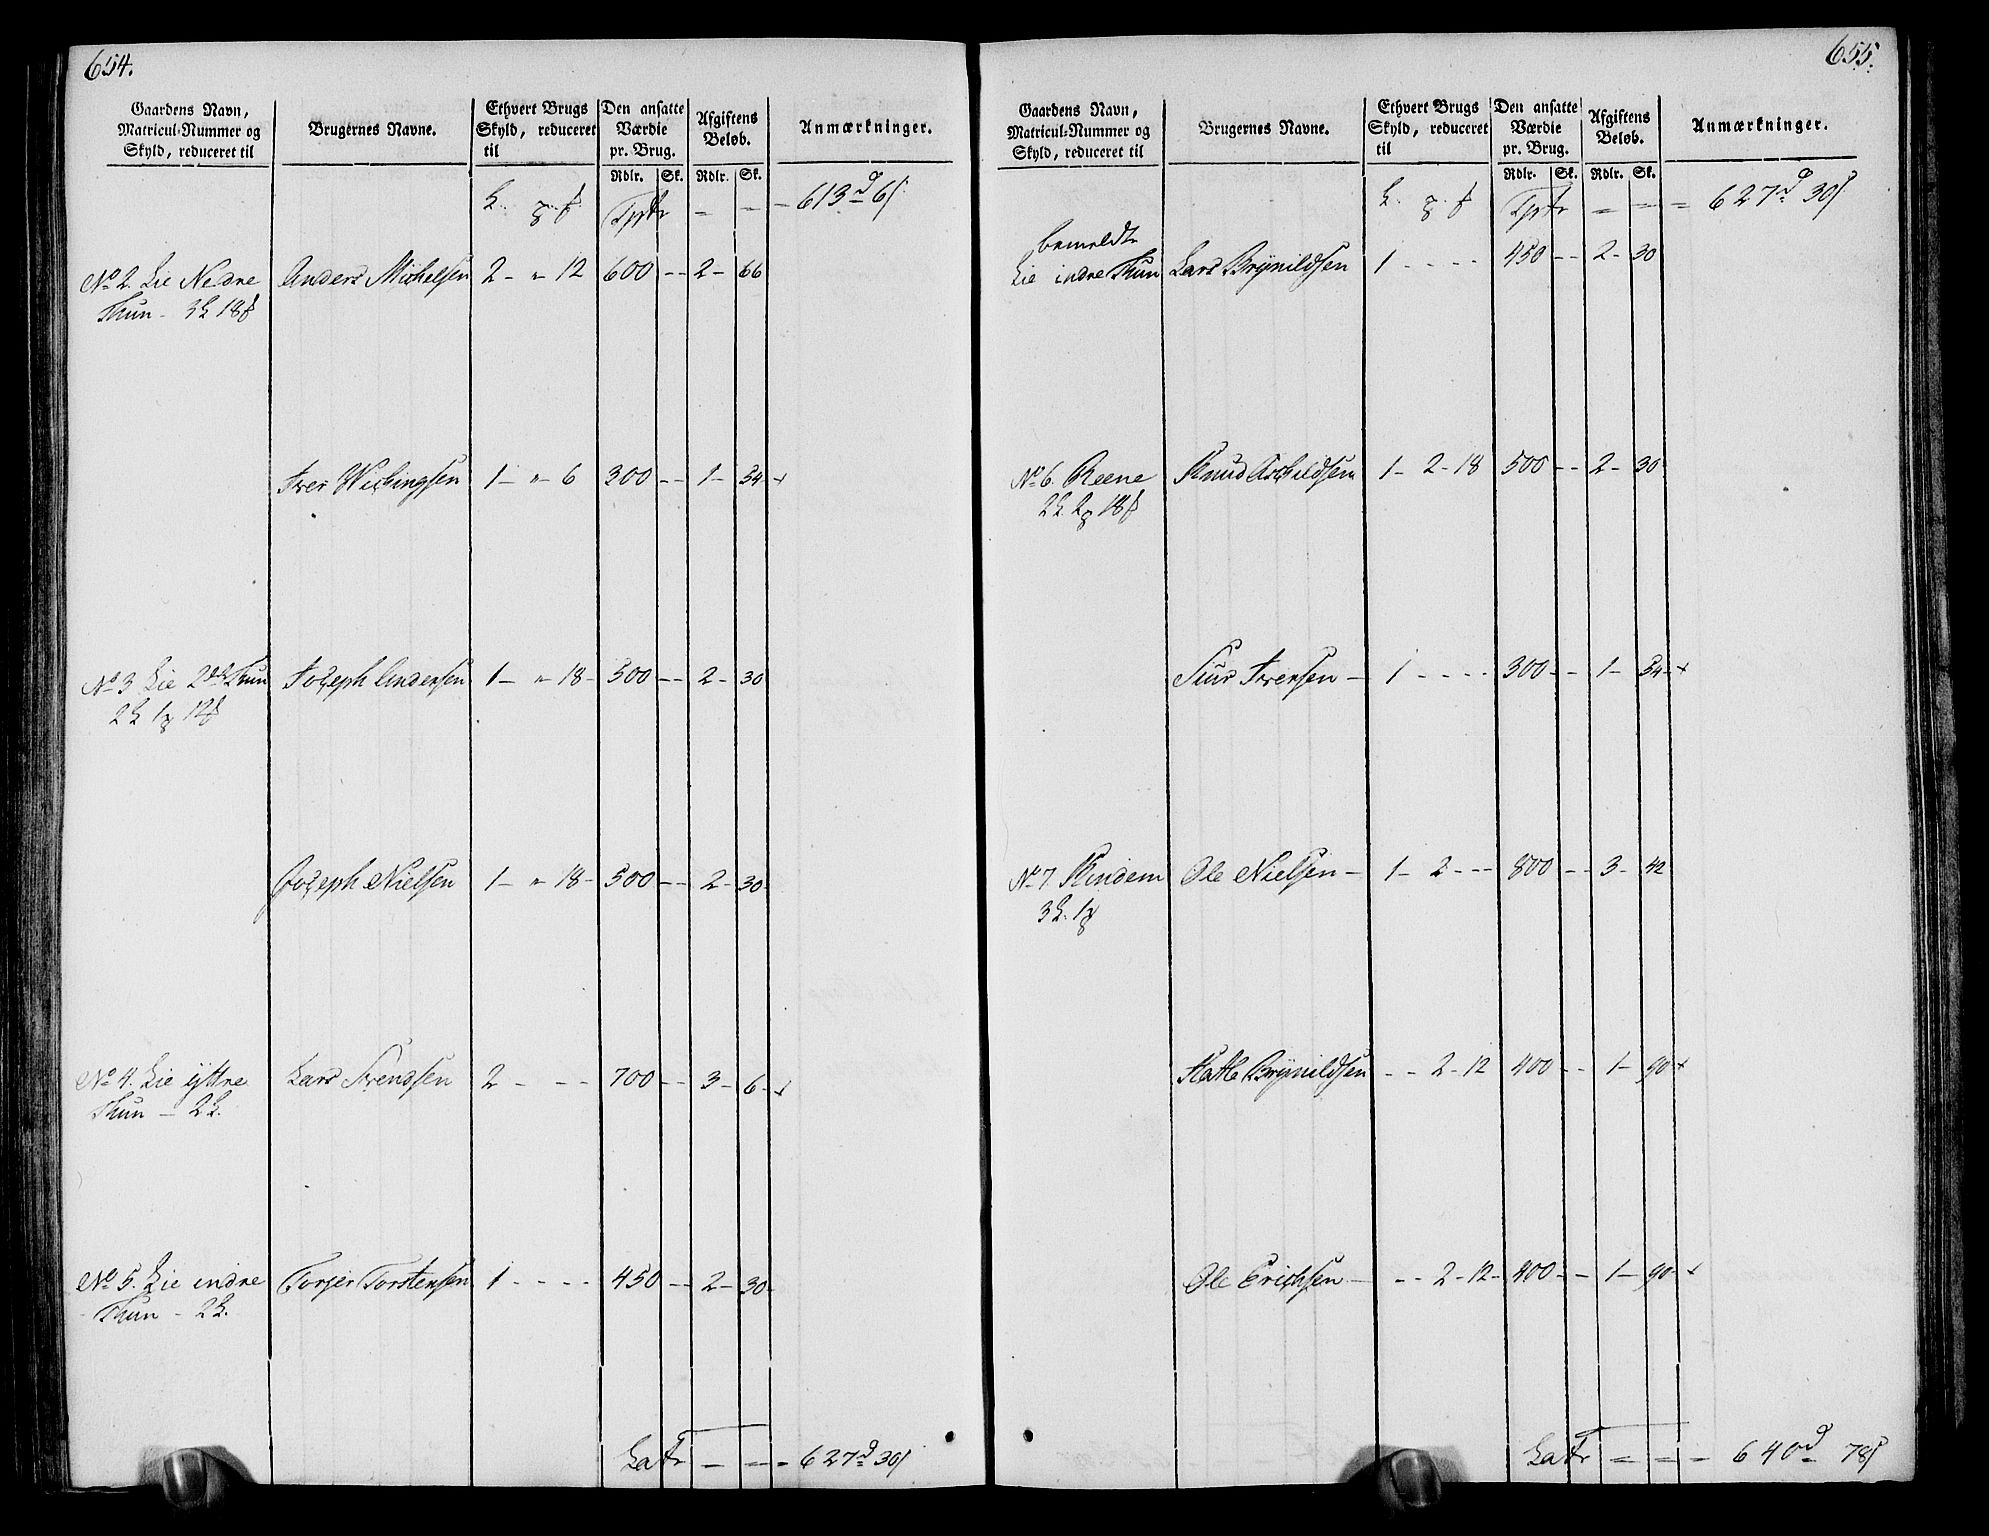 654.
Gaardens Navn, Matricul-Nummer og Skyld, reduceret til | Brugernes Navne. | Ethvert Brugs Skyld, reduceret til | Den ansatte Værdie pr. Brug. | Afgiftens Beløb. | Anmærkninger.
Rdlr. | Sk. | Rdlr. | Sk.
Tpfr – – – 613 d 6 s
No 2. Lie Nedre | Anders Michelsen | 2 – " 12 | 600 – – | 2 – | 66
Thun – 3 18
Iver Wichingsen | 1 – " – 6 | 300 – – | 1 – | 54 – +
No 3 Lie Thun | Joseph Andersen | 1 – " 18 – | 500 – – | 2 – | 30
2 1 12
Joseph Nielsen | 1 – " 18 – | 500 – – | 2 – | 30
No 4. Lie yttre | Lars Svendsen | 2 – – – | 700 – – | 3 – | 6 – +
Thun – 2
No 5. Lie indre | Torjer Torstensen | 1 – – – – | 450 – – | 2 – | 30
Thun – 2
Latr – – – 627 d 30 s
655.
Gaardens Navn, Matricul-Nummer og Skyld, reduceret til | Brugernes Navne. | Ethvert Brugs Skyld, reduceret til | Den ansatte Værdie pr. Brug. | Afgiftens Beløb. | Anmærkninger.
Rdlr. | Sk. | Rdlr. | Sk.
Tpfr = = = 627 d 30 s
bemeldte
Lie indre Thun | Lars Brynildsen | 1 – – – – | 450 – – | 2 – | 30
No 6. Reene | Knud Archildsen | 1 – 2 – 18 | 500 – – | 2 – | 30
2 2 18
Siur Iversen – | 1 – – – – | 300 – – | 1 – | 54 – +
No 7. Kindem | Ole Nielsen – | 1 – 2 – – – | 800 – – | 3 – | 42
3 1
Brynildsen | – – 2 – 12 | 400 – – | 1 – | 90 +
Ole Erichsen – | – – 2 – 12 – | 400 – – | 1 – | 90 – +
Latr = = – 640 d 78 s